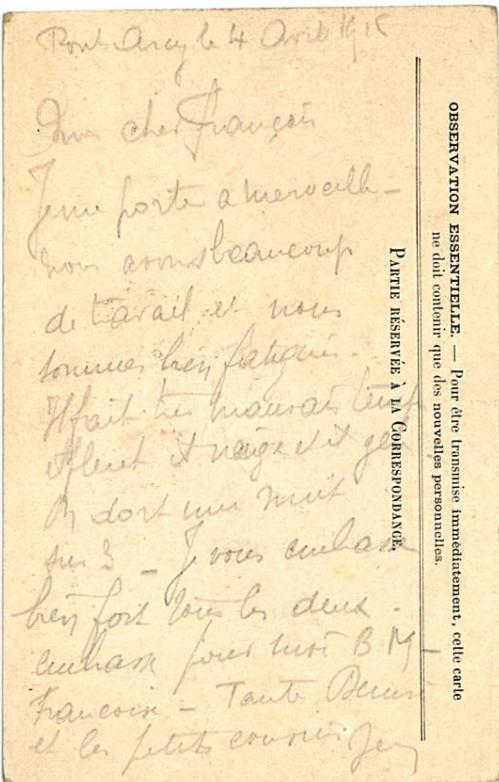 Pont Arcy le 4 Avril 1915
Mon cher François
Je me porte a merveille –
nous avons beaucoup
de travail et nous
sommes bien fatigués.
Il fait très mauvais temps
il pleut il neige et il gèle
On dort une nuit
sur 3 – Je vous embrasse
bien fort tous les deux.
embrasse pour moi B M –
Françoise – Tante
et les petits cousins
OBSERVATION ESSENTIELLE. — Pour être transmise immédiatement, cette carte
ne doit contenir que des nouvelles personnelles.
PARTIE RÉSERVÉE À LA CORRESPONDANCE.